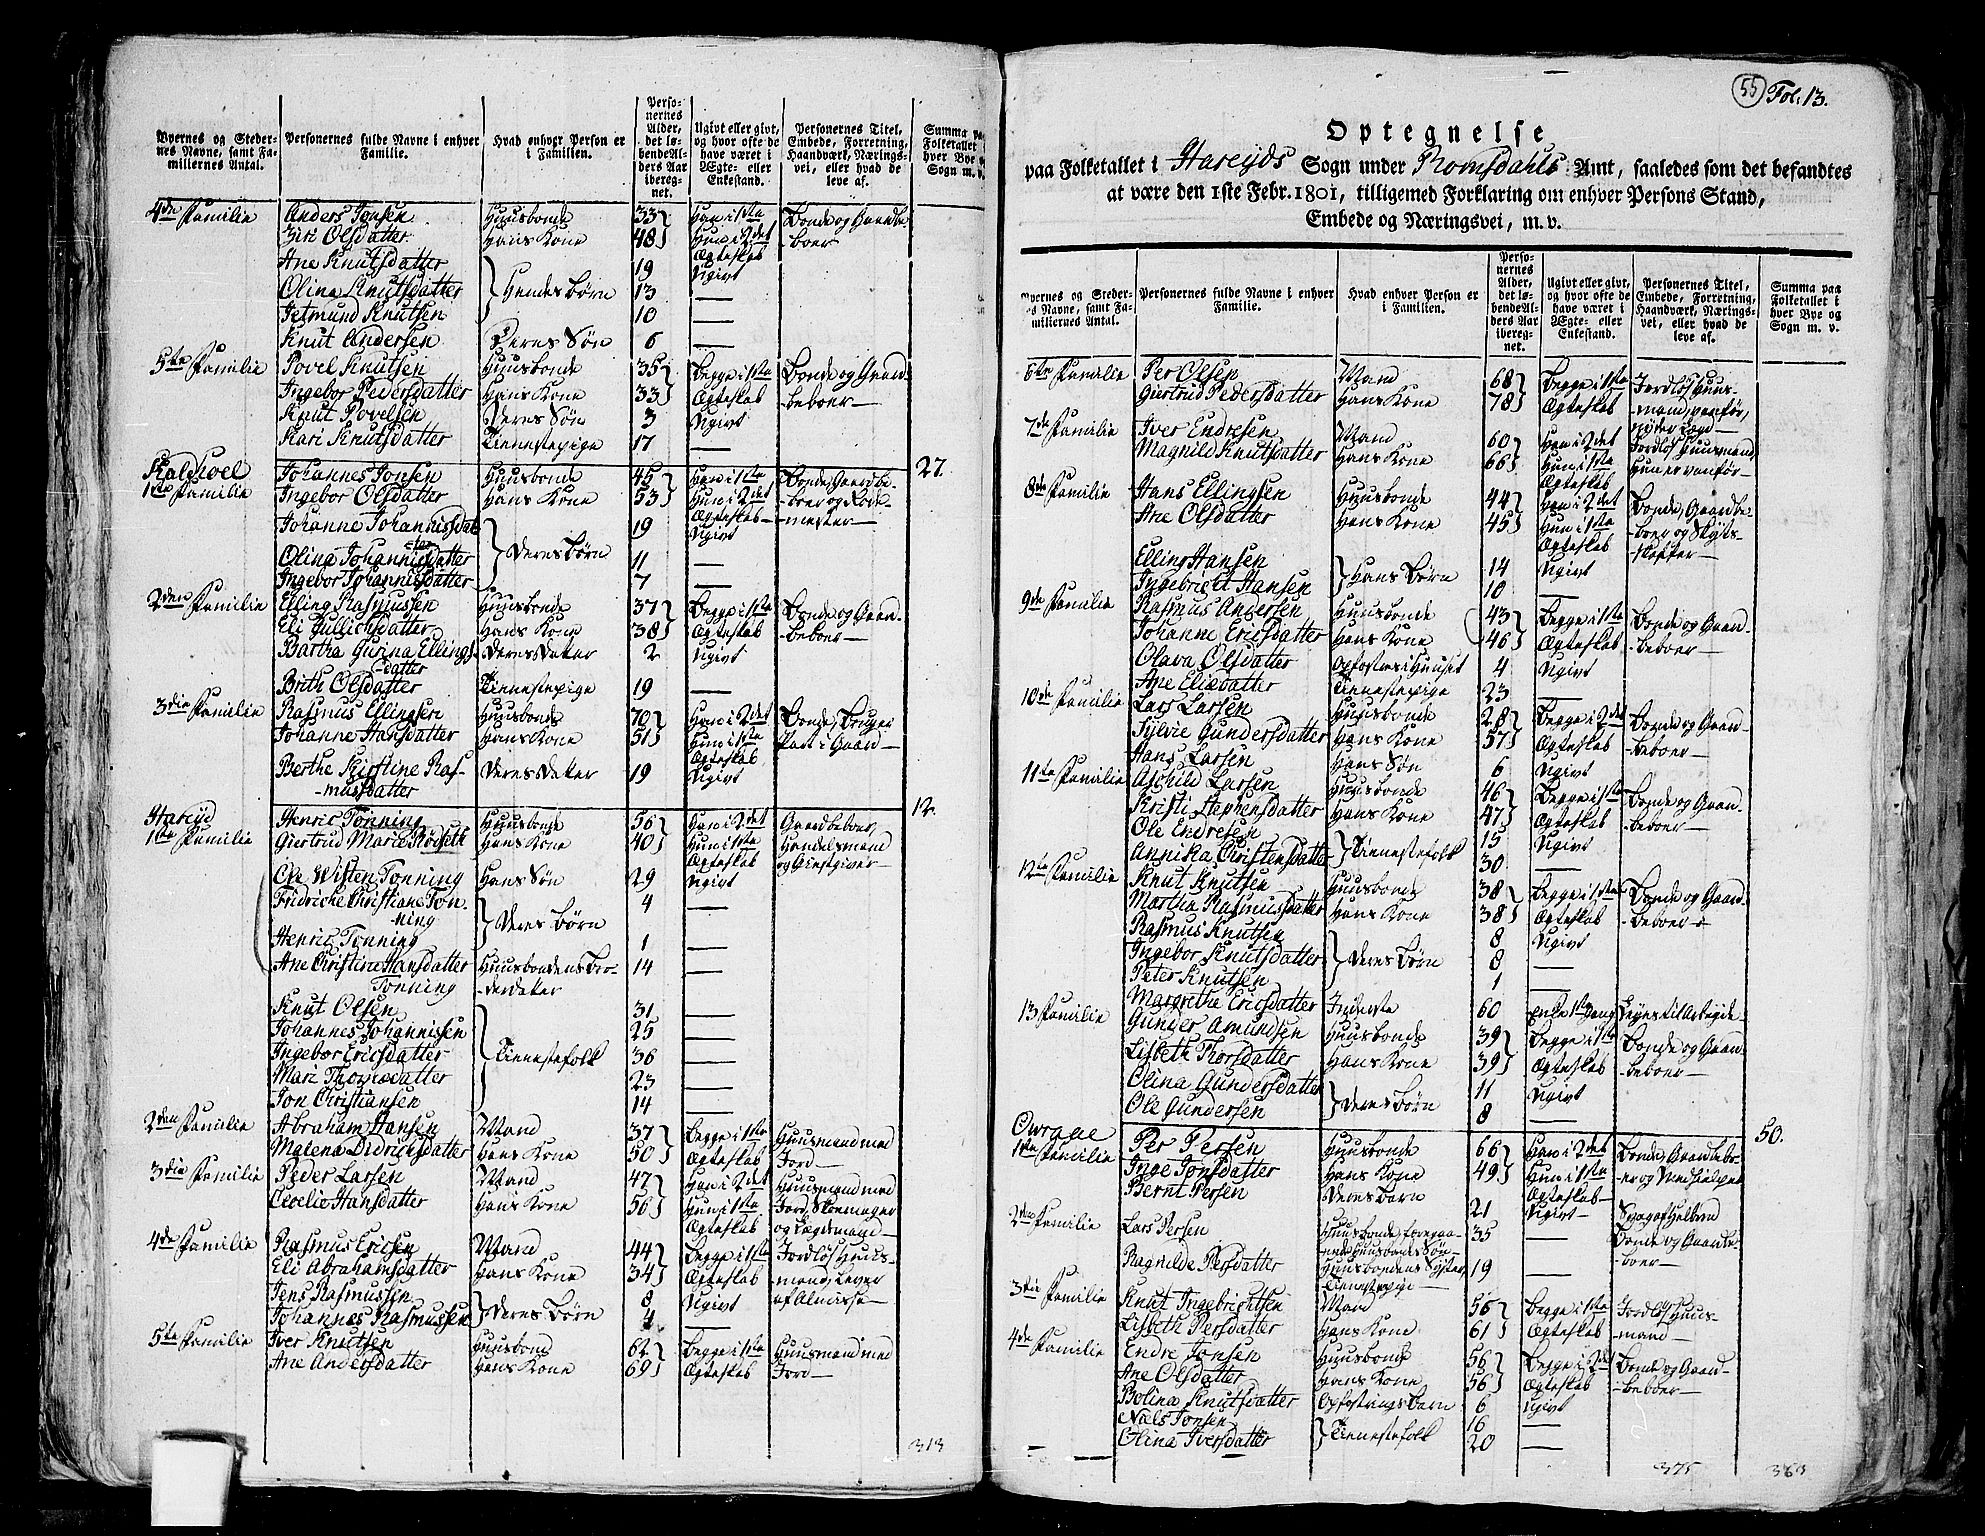 Byernes og Stedernes Navne, samt Familiernes Antal.
Personernes fulde Navne i enhver Familie.
Hvad enhver Person er i Familien.
Personernes Alder, det løbende Alders Aar iberegnet.
Ugivt eller givt, og hvor ofte de have været i Ægte- eller Enkestand.
Personernes Titel, Embede, Forretning, Haandværk, Næringsvei, eller hvad de leve af.
Summa paa Folketallet i hver Bye og Sogn m. v.
4de Familie Anders Jonsen Huusbonde 33 Han i 1ste Bonde og Gaardbe-
Siri Olsdatter Hans Kone 48 Hun i 2det -boer
Ægteskab
Ane Knutsdatter Hendes Børn 19 Ugivt
Olina Knutsdatter 13 —
Jetmund Knutsen 10 —
Knut Andersen Deres Søn 6 —
5te Familie Povel Knutsen Huusbonde 35 Begge i 1ste Bonde og Gaard-
Ingebor Pedersdatter Hans Kone 33 Ægteskab beboer
Knut Povelsen Deres Søn 3 Ugivt
Kari Knutsdatter Tienestepige 17 —
27.
Johannes Jonsen Huusbonde 45 Han i 1ste Bonde, Gaardbe-
1ste Familie Ingebor Olsdatter Hans Kone 53 Hun i 2det -boer og Rode-
Ægteskab mester
Johanne Johannisdat- 19 Ugivt
ter
Olina Johannisdatter Deres Børn 11 —
Ingebor Johannisdatter 7 —
2den Familie Elling Rasmussen Huusbonde 37 Begge i 1ste Bonde og Gaard-
Eli Gullichsdatter Hans Kone 38 Ægteskab beboer
Bartha Gurina Ellings- Deres Dater 2 Ugivt
datter
Brith Olsdatter Tienestepige 19 —
3die Familie Rasmus Ellingsen Huusbonde 70 Han i 2det Bonde, Bruger
Johanne Hansdatter Hans Kone 51 Hun i 1ste Part i Gaard
Ægteskab
Berthe Kirstine Ras- Deres Dater 19 Ugivt
-musdatter
12.
Hareijd Henric Tonning Huusbonde 56 Han i 2det Gaardbeboer,
1ste Familie Giertrud Marie Rödseth Hans Kone 40 Hun i 1ste Handelsmand
Ægteskab og Giestgiver
Ole Wisten Tonning Hans Søn 29 Ugivt
Fridriche Christiane Ton- 4 —
ning Deres Børn
Henric Tonning 1 —
Ane Christine Hansdatter Huusbondens Bro- 14 —
Tonning derdater
Knut Olsen 31 —
Johannes Johannisen 25 —
Ingebor Ericsdatter Tienestefolk 36 —
Mari Thomasdatter 23 —
Jon Christiansen 14 —
2den Familie Abraham Hansen Mand 37 Begge i 1ste Huusmand med
Malena Didrichsdatter Hans Kone 50 Ægteskab Jord
3die Familie Peder Larsen Mand 47 Han i 2det Huusmand med
Cecelie Hansdatter Hans Kone 56 Hun i 1ste Jord, Skomager
Ægteskab og Lægdsmand
4de Familie Rasmus Ericsen Mand 44 Begge i 1ste Jordløs Huus-
Eli Abrahamsdatter Hans Kone 34 Ægteskab mand, Lever
Jens Rasmussen 8 Ugivt af Almisse
Johannes Rasmussen Deres Børn 4 —
5te Familie Iver Knutsen Huusbond 62 Begge i 1ste Huusmand med
Ane Andersdatter Hans Kone 69 Ægteskab Jord
313
55 Fol: 13.
Optegnelse
paa Folketallet i Hareijds Sogn under Romsdahls Amt, saaledes som det befandtes
at være den 1ste Febr. 1801, tilligemed Forklaring om enhver Persons Stand,
Embede og Næringsvei, m. v.
Byernes og Stedernes Navne, samt Familiernes Antal.
Personernes fulde Navne i enhver Familie.
Hvad enhver Person er i Familien.
Personernes Alder, det løbende Alders Aar iberegnet.
Ugivt eller givt, og hvor ofte de have været i Ægte- eller Enkestand.
Personernes Titel, Embede, Forretning, Haandværk, Næringsvei, eller hvad de leve af.
Summa paa Folketallet i hver Bye og Sogn m. v.
6te Familie Per Olsen Mand 68 Begge i 1ste Jordløs Huus-
Giertrud Pedersdatter Hans Kone 78 Ægteskab mand, vanför,
7de Familie Iver Endresen Mand 60 Han i 2det Jordløs Huusmand,
Magnild Knutsdatter Hans Kone 66 Hun i 1ste Hun er vanför
Ægteskab
8de Familie Hans Ellingsen Huusbonde 44 Han i 2det Bonde, Gaardbe-
Ane Olsdatter Hans Kone 45 Hun i 1ste boer og Skyds-
Ægteskab skaffer
Elling Hansen 14 Ugivt
Ingebricht Hansen Hans Børn 10 —
9de Familie Rasmus Andersen Huusbonde 43 Begge i 1ste Bonde og Gaard-
Johanne Ericsdatter Hans Kone 46 Ægteskab beboer
Olava Olsdatter Opfostres i Huuset 4 Ugivt
Ane Eliædatter Tienestepige 23 —
10de Familie Lars Larsen Huusbonde 28 Begge i 2det Bonde og Gaard-
Sylvie Gundersdatter Hans Kone 57 Ægteskab beboer
Hans Larsen Hans Søn 6 Ugivt
11te Familie Aschild Larsen Huusbonde 46 Begge i 1ste Bonde og Gaard-
Kristi Stephensdatter Hans Kone 47 Ægteskab beboer
Ole Endresen 15 Ugivt
Annika Christensdatter Tienestefolk 30 —
12te Familie Knut Knutsen Huusbonde 38 Begge i 1ste Bonde og Gaard-
Martha Rasmusdatter Hans Kone 38 Ægteskab beboer
Rasmus Knutsen 8 Ugivt
Ingebor Knutsdatter Deres Børn 8 —
Peter Knutsen 1 —
Margrethe Ericsdatter Inderste 60 Enke 1ste Gang
13 Familie Gunder Amundsen Huusbonde 39 Begge i 1ste Bonde og Gaard-
Lisbeth Thorsdatter Hans Kone 39 Ægteskab beboer
Olina Gundersdatter 11 Ugivt
Ole Gundersen Deres Børn 8 —
50.
Overaae Per Persen Huusbonde 66 Han i 2det Bonde, Gaardbebo-
1ste Familie Inge Jonsdatter Hans Kone 49 Hun i 1ste er og Medhielper
Bernt Persen Deres Barn Ægteskab
21 Ugivt
2den Familie Lars Persen Huusbonde, foregaa- 35 — Bonde og Gaardbe-
ende Huusbondes Søn boer
Ragnilde Persdatter Huusbondens Syster, 19 —
Tienestepige
3die Familie Knut Ingebrichtsen Mand 56 Begge i 1ste Jordløs Huus-
Lisbeth Persdatter Hans Kone 61 Ægteskab mand
4de Familie Endre Jonsen Huusbonde 56 Begge i 2det Bonde og Gaard-
Ane Olsdatter Hans Kone 56 Ægteskab beboer
Bolina Knutsdatter Opfostrings Barn 6 Ugivt
Niels Jonsen 16 —
Olina Iversdatter Tienestefolk 20 —
375 363